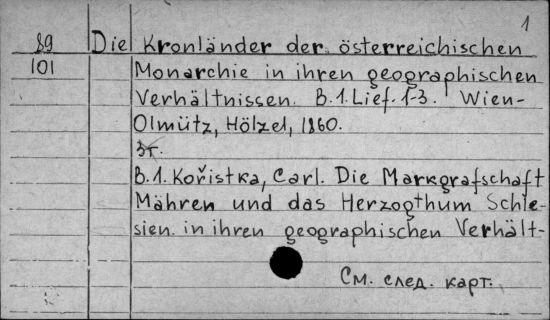 1
89 Die Kronländer der österreichischen
101 Monarchie in ihren geographischen
Verhältnissen. B.1. Lief. 1-3. Wien-
Olmütz, Hölzel, 1860.
3т.
B.1. Kořistka, Carl. Die Markgrafschaft
Mähren und das Herzogthum Schle-
sien in ihren geographischen Verhält-
См. след. карт.